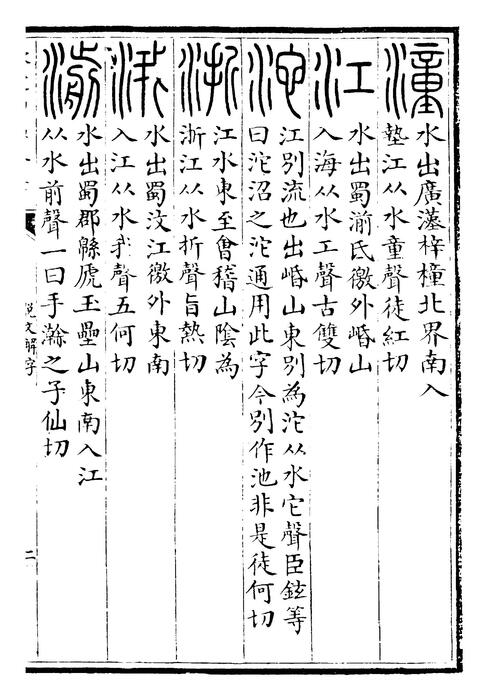 潼
水出廣漢梓橦北界南入
墊江从水童聲徒紅切
江
水出蜀湔氏徼外崏山
入海从水工聲古雙切
沱
江別流也出崏山東別為沱从水它聲臣鉉等
曰沱沼之沱通用此字今別作池非是徒何切
浙
江水東至會稽山陰為
浙江从水折聲旨熱切
涐
水出蜀汶江徼外東南
入江从水我聲五何切
湔
水出蜀郡緜虒玉壘山東南入江
从水前聲一曰手瀚之子仙切
說文解字
二